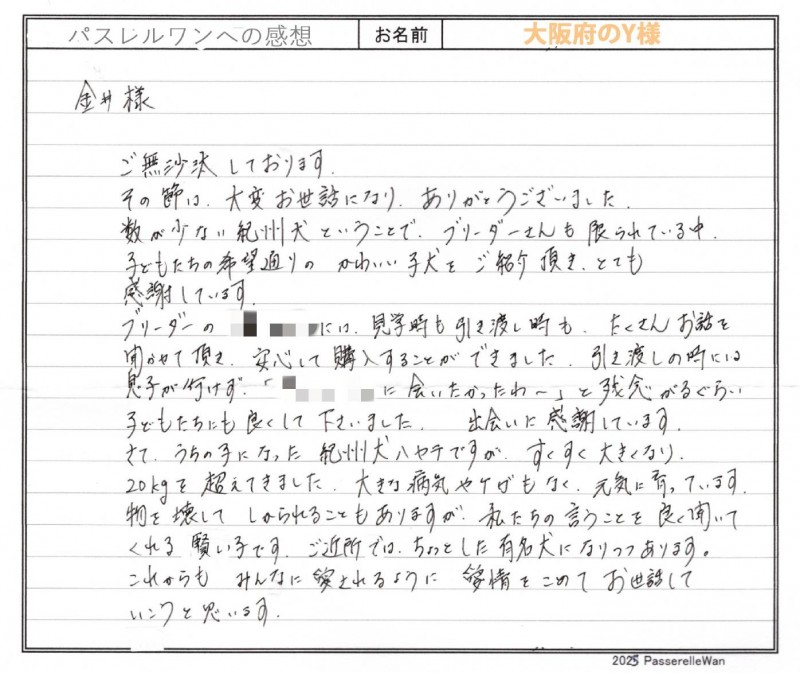 パスレルワンへの感想 お名前 大阪府のY様
金井様
ご無沙汰しております.
その節は、大変お世話になり、ありがとうございました.
数が少ない紀州犬ということで、ブリーダーさんも限られている中、
子どもたちの希望通りの かわいい子犬を ご紹介頂き、とても
感謝しています.
ブリーダーの には、見学時も引き渡し時も、たくさんお話を
聞かせて頂き、安心して購入することができました. 引き渡しの時には
息子が行けず、「 に会いたかったわ〜」と残念がるぐらい
子どもたちにも良くして下さいました. 出会いに感謝しています.
さて、うちの子になった紀州犬ハヤテですが、すくすく大きくなり、
20kgを超えてきました. 大きな病気やケガもなく、元気に育っています.
物を壊して しかられることもありますが、私たちの言うことを良く聞いて
くれる賢い子です. ご近所では、ちょっとした有名犬になりつつあります。
これからも みんなに愛されるように 愛情をこめて お世話して
いこうと思います.
2025 PasserelleWan